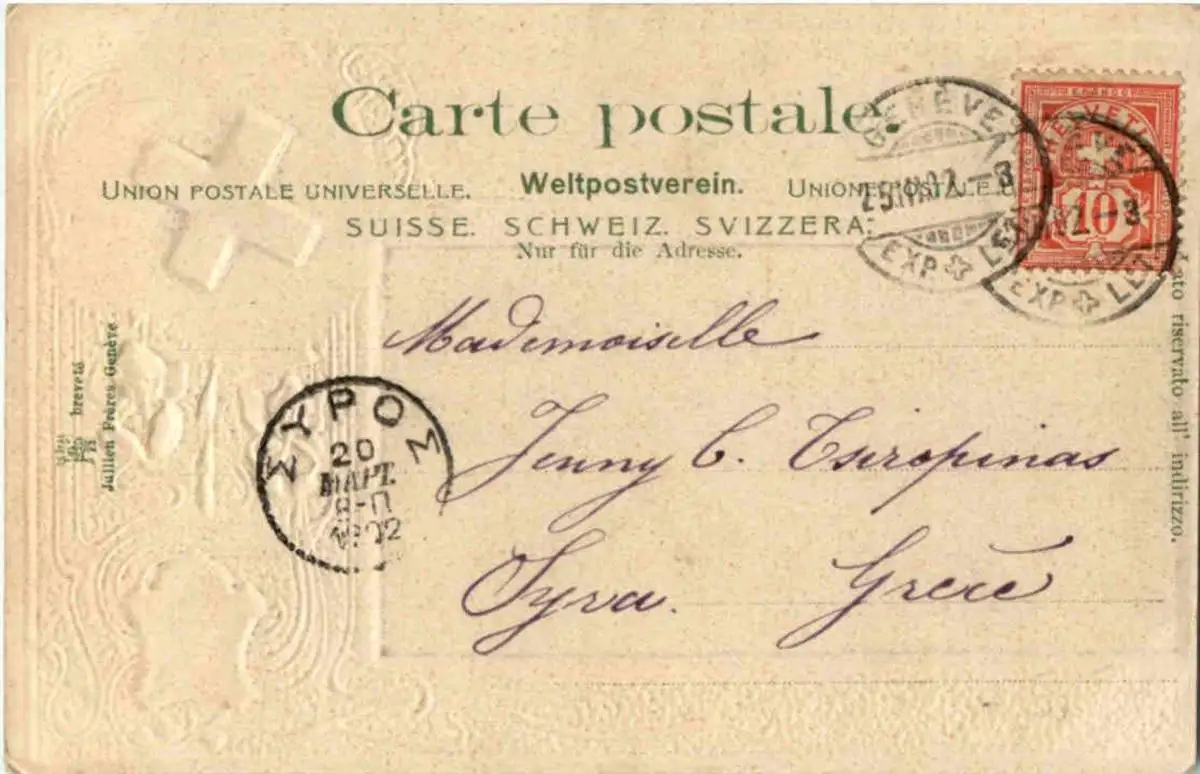 Carte postale.
UNION POSTALE UNIVERSELLE. Weltpostverein. UNIONE POSTALE
SUISSE. SCHWEIZ. SVIZZERA.
Nur für die Adresse.
GENÈVE
25.III.02.–3
EXP LET
HELVETIA
10
02.–3
EXP LET
riservato all' indirizzo.
Mademoiselle
Jenny C. Tseropinas
Syra. Grèce
ΣΥΡΟΣ
20
ΜΑΡΤ.
8-Π
1902
breveté
Jullien Frères Genève.